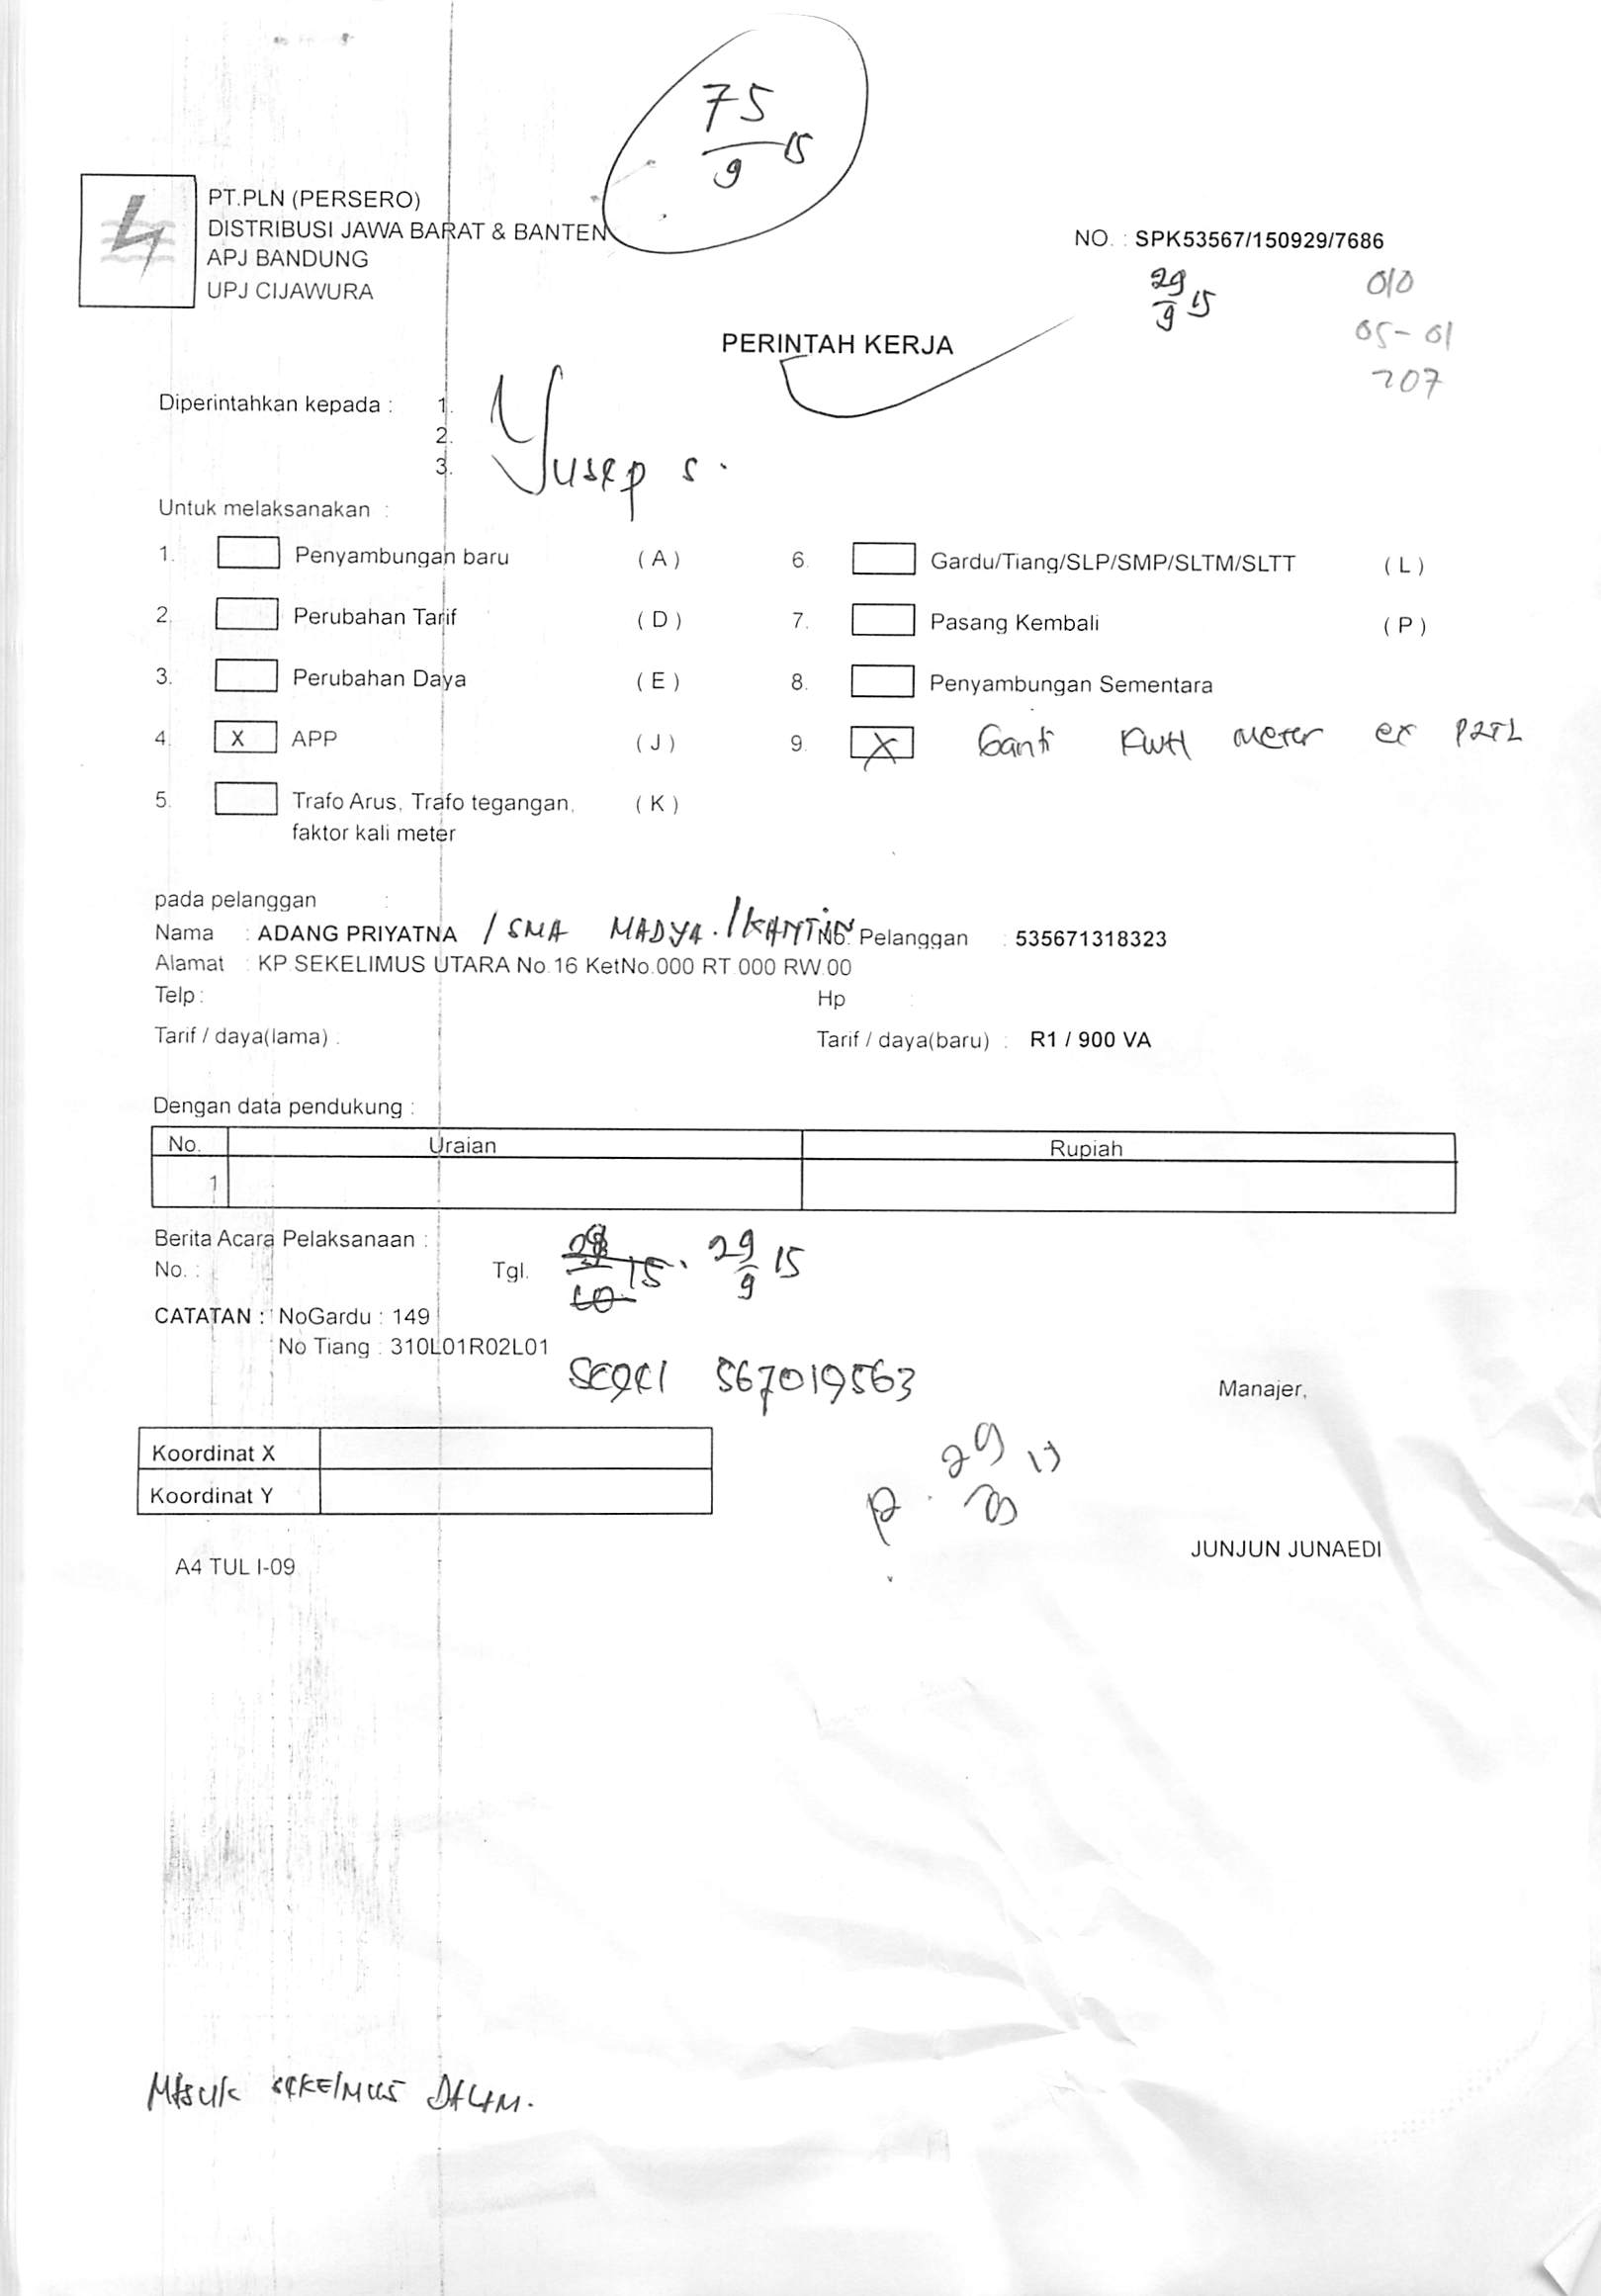 75
9 15
PT.PLN (PERSERO)
DISTRIBUSI JAWA BARAT & BANTEN
APJ BANDUNG
UPJ CIJAWURA
NO. : SPK53567/150929/7686
29
9 15
010
05-01
207
PERINTAH KERJA
Diperintahkan kepada : 1.
2.
3.
Yusep S.
Untuk melaksanakan :
1. Penyambungan baru ( A )
2. Perubahan Tarif ( D )
3. Perubahan Daya ( E )
4. X APP ( J )
5. Trafo Arus, Trafo tegangan, ( K )
faktor kali meter
6. Gardu/Tiang/SLP/SMP/SLTM/SLTT ( L )
7. Pasang Kembali ( P )
8. Penyambungan Sementara
9. X Ganti KWH Meter ex P2TL
pada pelanggan :
Nama : ADANG PRIYATNA / SMA MADYA. / KANTIN No. Pelanggan : 535671318323
Alamat : KP.SEKELIMUS UTARA No.16 KetNo.000 RT.000 RW.00
Telp : Hp :
Tarif / daya(lama) : Tarif / daya(baru) : R1 / 900 VA
Dengan data pendukung :
No. Uraian Rupiah
1
Berita Acara Pelaksanaan :
No. : Tgl. 29
9 15
CATATAN : NoGardu : 149
No Tiang : 310L01R02L01
567019563
Manajer,
Koordinat X
Koordinat Y
P. 29
JUNJUN JUNAEDI
A4 TUL I-09
MASUK SEKELIMUS DALAM.